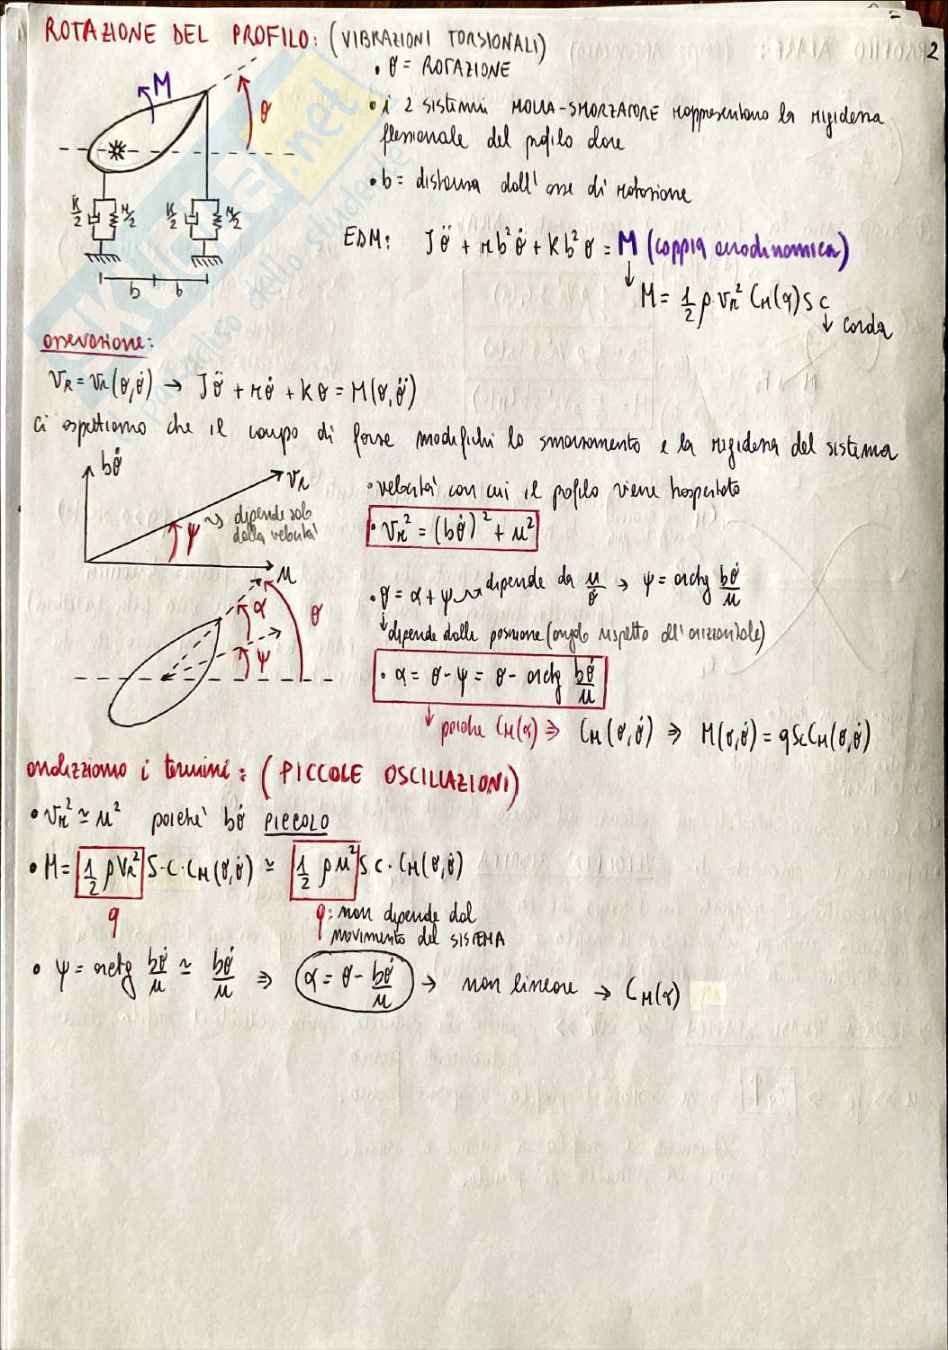 ROTAZIONE DEL PROFILO: (VIBRAZIONI TORSIONALI)
2
• θ = ROTAZIONE
M
θ
• i 2 sistemi MOLLA-SMORZATORE rappresentano la rigidezza
flessionale del profilo alare
• b = distanza dall'asse di rotazione
K/2 r/2 K/2 r/2
b b
EDM: Jθ̈ + rb²θ̇ + Kb²θ = M (coppia aerodinamica)
M = 1/2 ρ V_R² C_M(α) S C
corda
osservazione:
V_R = V_R(θ,θ̇) → Jθ̈ + rθ̇ + Kθ = M(θ,θ̇)
ci aspettiamo che il campo di forze modifichi lo smorzamento e la rigidezza del sistema
bθ̇
V_R
ψ → dipende solo
dalla velocità
u
• velocità con cui il profilo viene trasportato
• V_R² = (bθ̇)² + u²
α
θ
ψ
• θ = α + ψ → dipende da u/θ̇ → ψ = arctg bθ̇/u
dipende dalla posizione (angolo rispetto all'orizzontale)
• α = θ - ψ = θ - arctg bθ̇/u
poiché C_M(α) ⇒ C_M(θ,θ̇) ⇒ M(θ,θ̇) = qSC C_M(θ,θ̇)
analizziamo i termini: (PICCOLE OSCILLAZIONI)
• V_R² ≃ u² poiché bθ̇ PICCOLO
• M = 1/2 ρ V_R² S·C·C_M(θ,θ̇) ≃ 1/2 ρ u² S C·C_M(θ,θ̇)
q
q: non dipende dal
movimento del SISTEMA
• ψ = arctg bθ̇/u ≃ bθ̇/u ⇒ α = θ - bθ̇/u → non lineare → C_M(α)
SKUOLA.net
paradiso dello studente